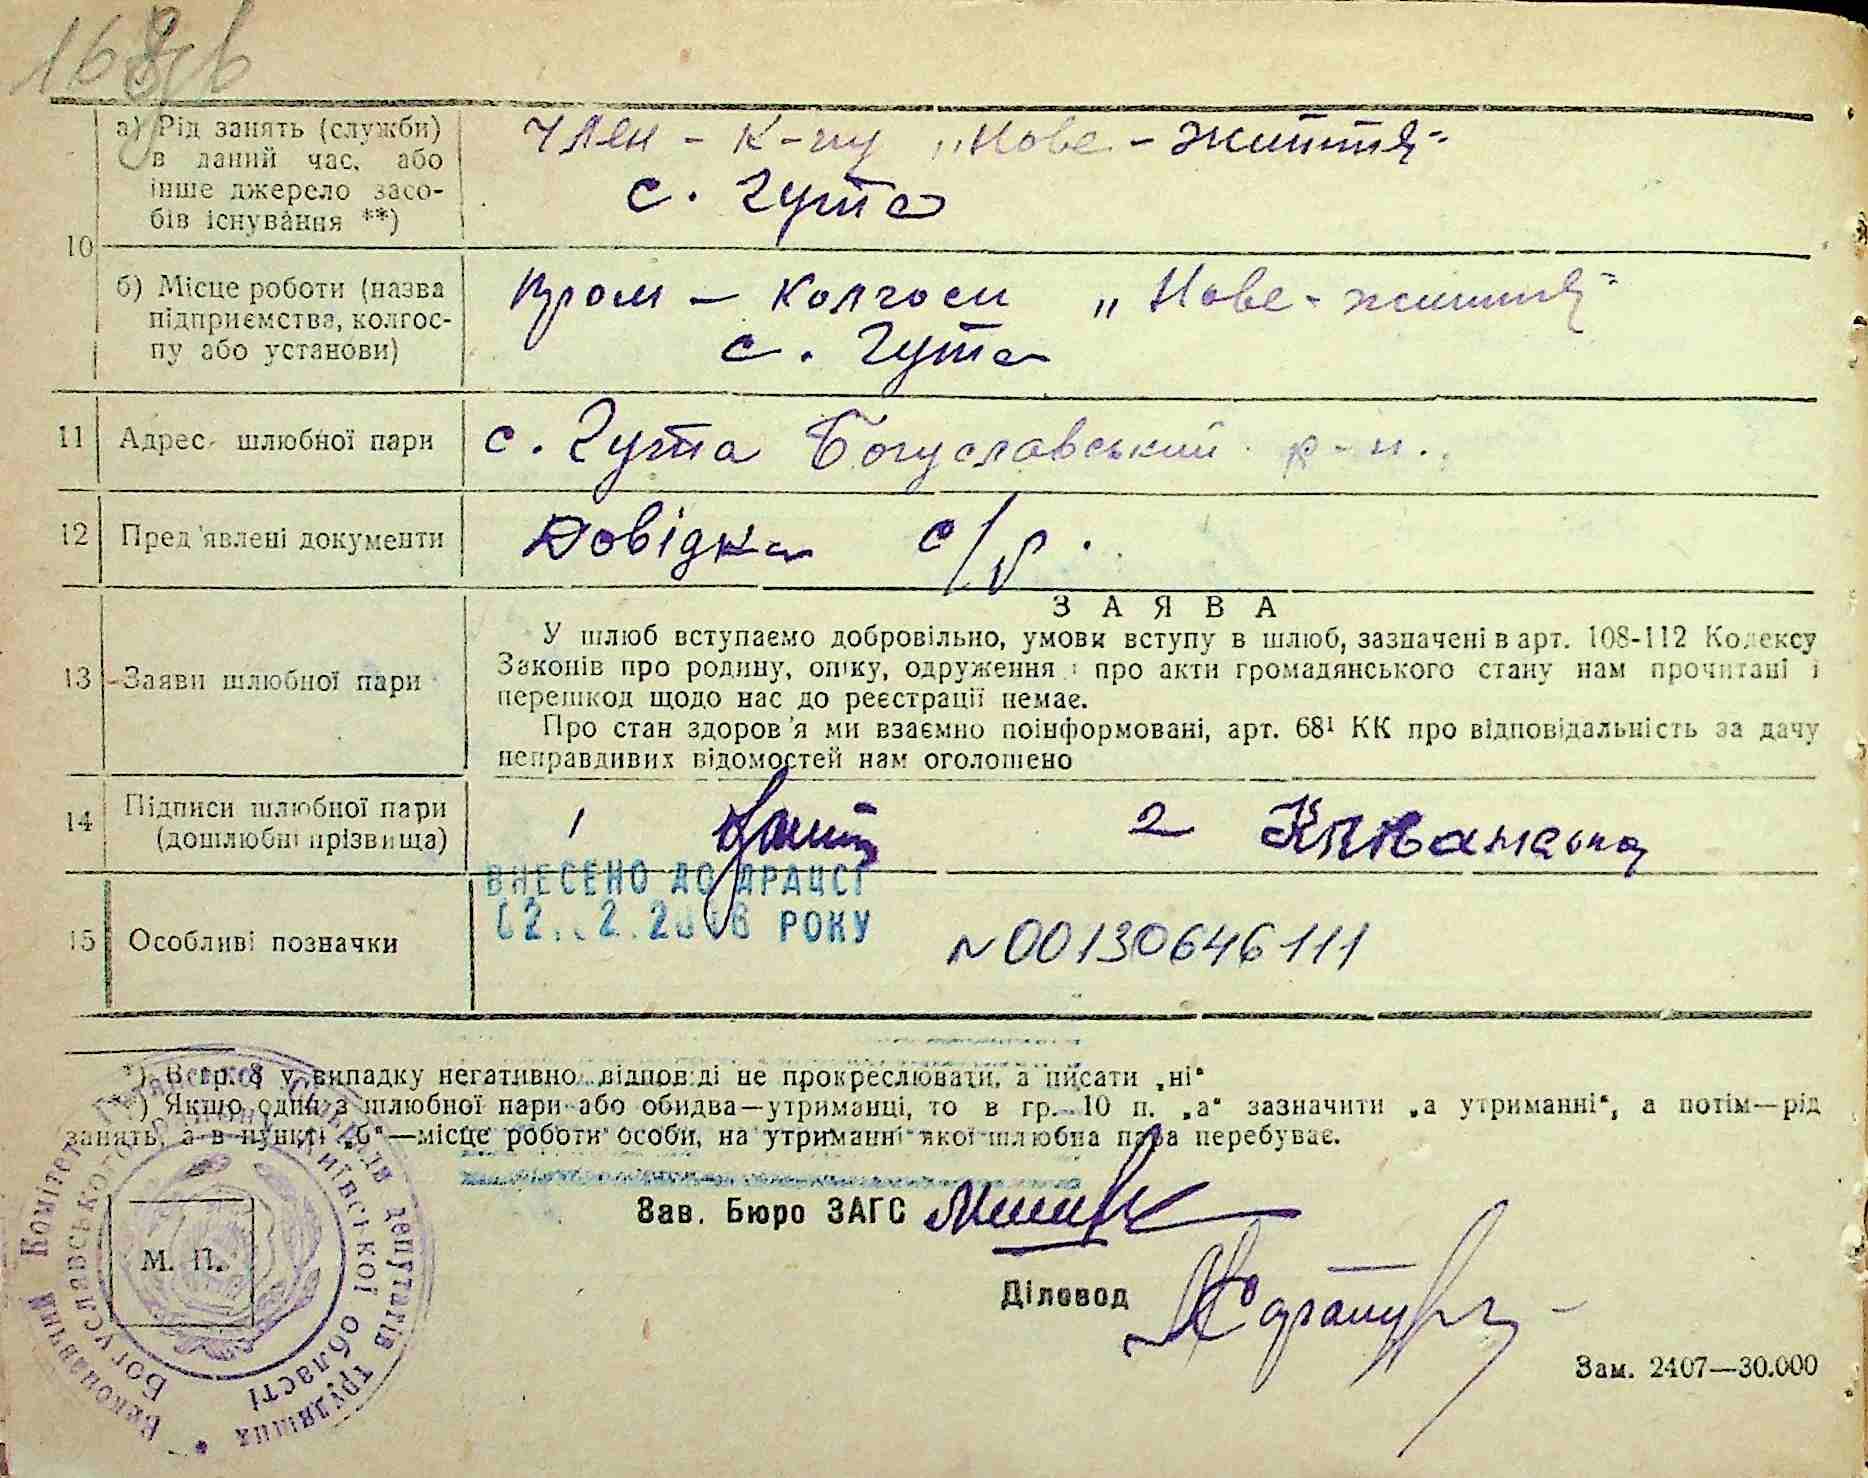 168зв
а) Рід занять (служби)
в даний час, або
інше джерело засо-
бів існування **)
Член - к-пу „Нове - життя“
с. Гута
10
б) Місце роботи (назва
підприємства, колгос-
пу або установи)
колгосп „Нове - життя“
с. Гута
11 Адрес шлюбної пари
с. Гута Богуславський р-н.
12 Пред'явлені документи
Довідка с/р.
13 Заяви шлюбної пари
ЗАЯВА
У шлюб вступаємо добровільно, умови вступу в шлюб, зазначені в арт. 108-112 Кодексу
Законів про родину, опіку, одруження і про акти громадянського стану нам прочитані і
перешкод щодо нас до реєстрації немає.
Про стан здоров'я ми взаємно поінформовані, арт. 68¹ КК про відповідальність за дачу
неправдивих відомостей нам оголошено
14 Підписи шлюбної пари
(дошлюбні прізвища)
1 2
ВНЕСЕНО ДО ДРАЦСГ
РОКУ
15 Особливі позначки
N00130646111
*) В гр. 8 у випадку негативно відповіді не прокреслювати, а писати „ні“
**) Якщо один з шлюбної пари або обидва—утриманці, то в гр. 10 п. „а“ зазначити „а утриманні“, а потім—рід
занять, а в пункті „б“—місце роботи особи, на утриманні якої шлюбна пара перебуває.
Зав. Бюро ЗАГС
Діловод
М. П.
Виконавчий Комітет Богуславської районної Ради депутатів трудящих
Богуславського Київської області
Зам. 2407—30.000